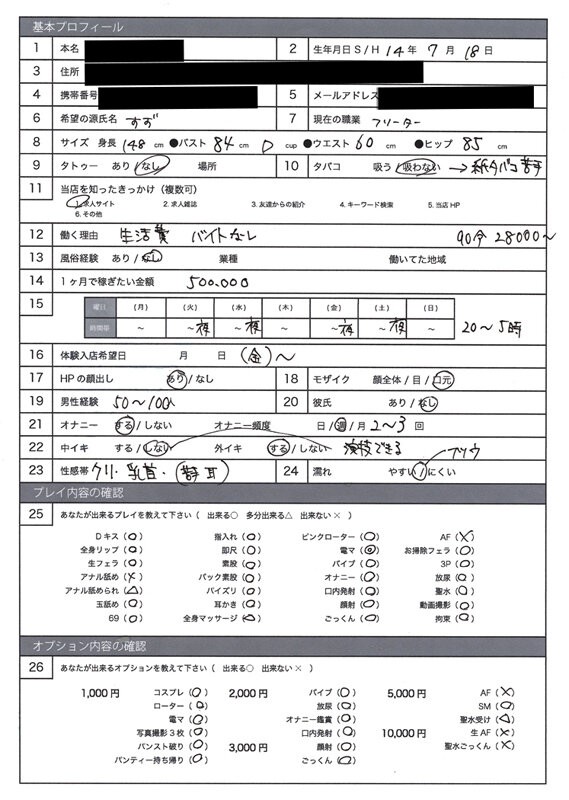 基本プロフィール
1 本名 2 生年月日 S/H 14年 7月 18日
3 住所
4 携帯番号 5 メールアドレス
6 希望の源氏名 すず 7 現在の職業 フリーター
8 サイズ 身長 148 cm ●バスト 84 cm D cup ●ウエスト 60 cm ●ヒップ 85 cm
9 タトゥー あり/なし 場所 10 タバコ 吸う/吸わない →紙タバコ苦手
11 当店を知ったきっかけ(複数可)
1.求人サイト 2.求人雑誌 3.友達からの紹介 4.キーワード検索 5.当店HP
6.その他
12 働く理由 生活費 バイトなし 90分 28000~
13 風俗経験 あり/なし 業種 働いてた地域
14 1ヶ月で稼ぎたい金額 500.000
15 曜日 (月) (火) (水) (木) (金) (土) (日)
時間帯 ~ ~夜 ~夜 ~ ~夜 ~夜 ~ 20~5時
16 体験入店希望日 月 日 (金)~
17 HPの顔出し あり/なし 18 モザイク 顔全体/目/口元
19 男性経験 50~100人 20 彼氏 あり/なし
21 オナニー する/しない オナニー頻度 日/週/月 2~3 回
22 中イキ する/しない 外イキ する/しない 演技できる フツウ
23 性感帯 クリ・乳首・耳 24 濡れ やすい/にくい
プレイ内容の確認
25 あなたが出来るプレイを教えて下さい( 出来る○ 多分出来る△ 出来ない× )
Dキス(○) 指入れ(○) ピンクローター(○) AF(×)
全身リップ(○) 即尺(○) 電マ(◎) お掃除フェラ(○)
生フェラ(○) 素股(○) バイブ(○) 3P(○)
アナル舐め(×) バック素股(○) オナニー(○) 放尿(○)
アナル舐められ(△) パイズリ(○) 口内発射(○) 聖水(○)
玉舐め(○) 耳かき(○) 顔射(○) 動画撮影(○)
69(○) 全身マッサージ(△) ごっくん(○) 拘束(○)
オプション内容の確認
26 あなたが出来るオプションを教えて下さい( 出来る○ 出来ない× )
1,000円 コスプレ(○) 2,000円 バイブ(○) 5,000円 AF(×)
ローター(○) 放尿(○) SM(○)
電マ(○) オナニー鑑賞(○) 聖水受け(△)
写真撮影3枚(○) 口内発射(○) 10,000円 生AF(×)
パンスト破り(○) 3,000円 顔射(○) 聖水ごっくん(×)
パンティー持ち帰り(○) ごっくん(○)